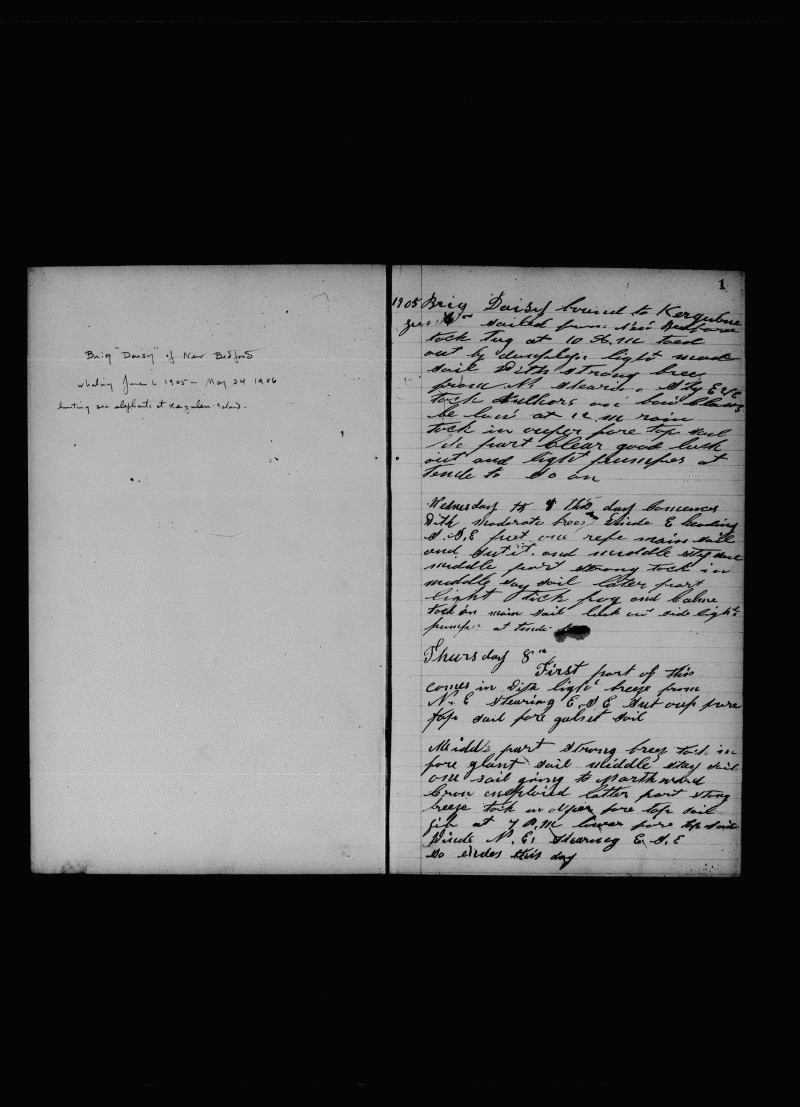 Brig "Daisy" of New Bedford
whaling June 6 1905 — May 24 1906
hunting sea elephants at Kerguelen Island.
1
1905 Brig Daisy bound to
sailed from New
tock Tug at 10 A.M
out by light
sail With strong breez
from N Stearin S by E
tock on
be low at 12 M rain
tock in ouper fore top sail
part Clear good luck
out and light pumpes at
tende to So en
Wednesday th this day Comences
With moderate breez Winde E heading
S.S.E put one refe main sail
and Sut it and middle stay sail
middle part strong tock in
middle stay sail later part
light tick fog and Calme
tock in main sail luk out side lights
pumps at tende
Thursday 8th
First part of this
comes in With light breeze from
N. E Stearing E.S.E Sut oup fore
top sail fore galnet sail
Midd's part strong breez tock in
fore glant sail middle stay sail
one sail going to northward
Crou emploied latter part strong
breeze tock in Upper fore top sail
gib at 7 P.M lower fore top sail
Winde N. E. Stearing E.S.E
So endes this day